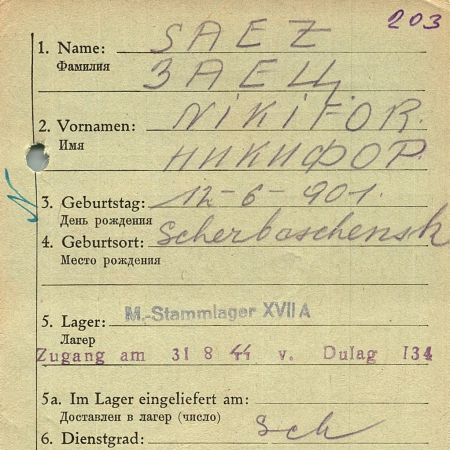 203
1. Name: SAEZ
Фамилия ЗАЕЦ.
2. Vornamen: NiKiFOR.
Имя НИКИФОР.
3. Geburtstag: 12-6-901.
День рождения
4. Geburtsort: Scherbaschensk
Место рождения
5. Lager: M.-Stammlager XVII A
Лагер
Zugang am 31 8 44 v. Dulag 134
5a. Im Lager eingeliefert am:
Доставлен в лагер (число)
6. Dienstgrad: Sch